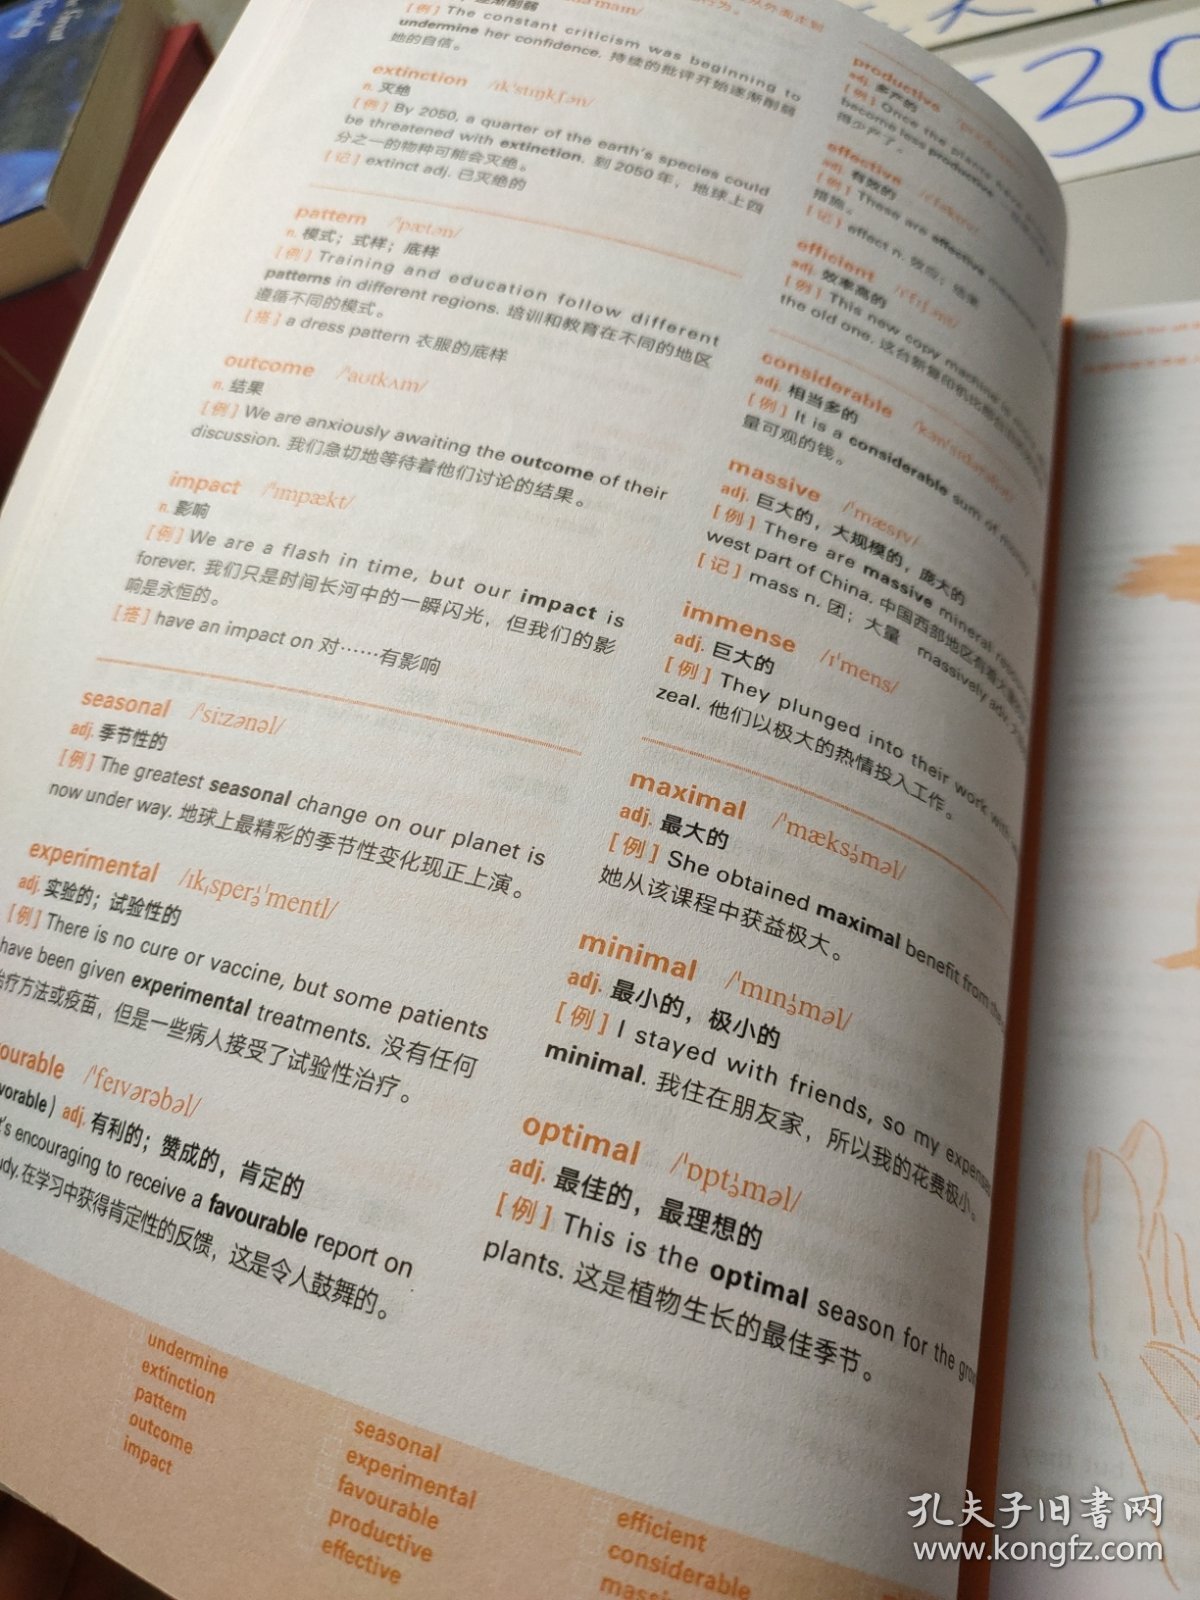 [例] The constant criticism was beginning to
undermine her confidence. 持续的批评开始逐渐削弱
她的自信。
extinction /ɪkˈstɪŋkʃən/
n. 灭绝
[例] By 2050, a quarter of the earth's species could
be threatened with extinction. 到2050年，地球上四
分之一的物种可能会灭绝。
[记] extinct adj. 已灭绝的
pattern /ˈpætən/
n. 模式；式样；底样
[例] Training and education follow different
patterns in different regions. 培训和教育在不同的地区
遵循不同的模式。
[搭] a dress pattern 衣服的底样
outcome /ˈaʊtkʌm/
n. 结果
[例] We are anxiously awaiting the outcome of their
discussion. 我们急切地等待着他们讨论的结果。
impact /ˈɪmpækt/
n. 影响
[例] We are a flash in time, but our impact is
forever. 我们只是时间长河中的一瞬闪光，但我们的影
响是永恒的。
[搭] have an impact on 对……有影响
seasonal /ˈsiːzənəl/
adj. 季节性的
[例] The greatest seasonal change on our planet is
now under way. 地球上最精彩的季节性变化现正上演。
experimental /ɪkˌsperɪˈmentl/
adj. 实验的；试验性的
[例] There is no cure or vaccine, but some patients
have been given experimental treatments. 没有任何
治疗方法或疫苗，但是一些病人接受了试验性治疗。
ourable /ˈfeɪvərəbəl/
vorable) adj. 有利的；赞成的，肯定的
's encouraging to receive a favourable report on
udy. 在学习中获得肯定性的反馈，这是令人鼓舞的。
productive
adj. 多产的
[例] Once the plants
become less productive
得少产了。
effective
adj. 有效的
[例] These are effective
措施。
[记] effect n. 效应；结果
efficient
adj. 效率高的
[例] This new copy machine is
the old one. 这台新复印机比
considerable
adj. 相当多的
[例] It is a considerable sum of
量可观的钱。
massive /ˈmæsɪv/
adj. 巨大的，大规模的，庞大的
[例] There are massive mineral
west part of China. 中国西部地区有着
[记] mass n. 团；大量 massively adv.
immense /ɪˈmens/
adj. 巨大的
[例] They plunged into their work with
zeal. 他们以极大的热情投入工作。
maximal /ˈmæksɪməl/
adj. 最大的
[例] She obtained maximal benefit from
她从该课程中获益极大。
minimal /ˈmɪnɪməl/
adj. 最小的，极小的
[例] I stayed with friends, so my expenses
minimal. 我住在朋友家，所以我的花费极小。
optimal /ˈɒptɪməl/
adj. 最佳的，最理想的
[例] This is the optimal season for the grow
plants. 这是植物生长的最佳季节。
undermine
extinction
pattern
outcome
impact
seasonal
experimental
favourable
productive
effective
efficient
considerable
massi
30
孔夫子旧书网
www.kongfz.com